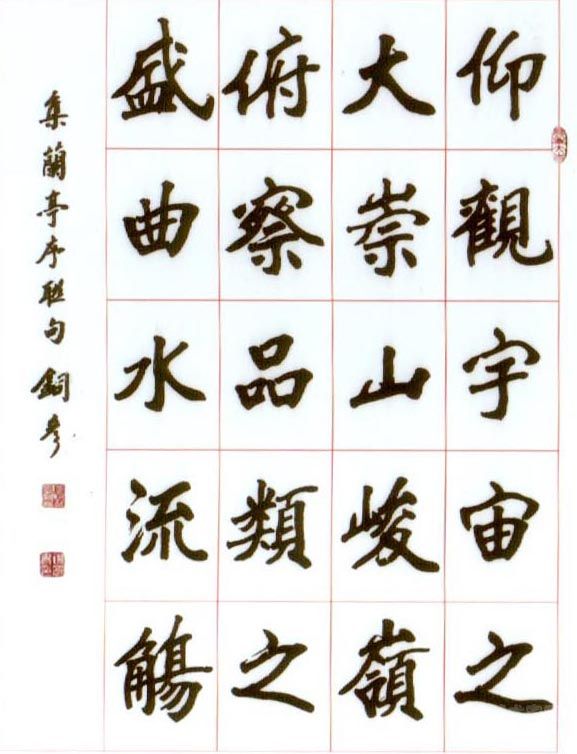 仰觀宇宙之
大崇山峻嶺
俯察品類之
盛曲水流觴
集蘭亭序聯句